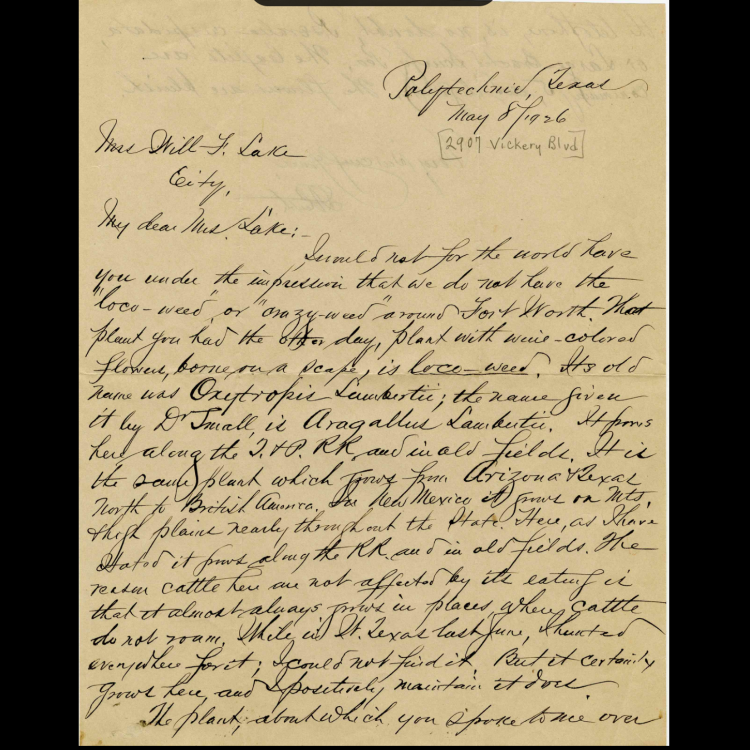 Polytechnic, Texas
May 8/1926
[2907 Vickery Blvd]
Mrs Will F. Lake
City,
My dear Mrs. Lake:-
I would not for the world have
you under the impression that we do not have the
"loco-weed" or "crazy-weed" around Fort Worth. That
plant you had the other day, plant with wine-colored
flowers, borne on a scape, is loco-weed. Its old
name was Oxytropis Lambertii; the name given
it by Dr Small, is Aragallus Lambertii. It grows
here along the T. & P. RR and in old fields. It is
the same plant which grows from Arizona & Texas
north to British America. In New Mexico it grows on Mts,
& high plains nearly throughout the State. Here, as I have
stated it grows along the RR. and in old fields. The
reason cattle here are not affected by its eating is
that it almost always grows in places, where cattle
do not roam. While in W. Texas last June, I hunted
everywhere for it; I could not find it. But it certainly
grows here, and I positively maintain it does
The plant, about which you spoke to me over